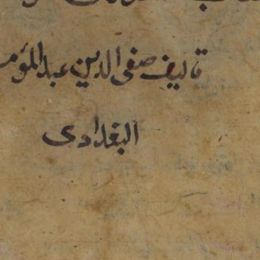 تاليف صفى الدين عبد المؤمـ
البغدادى